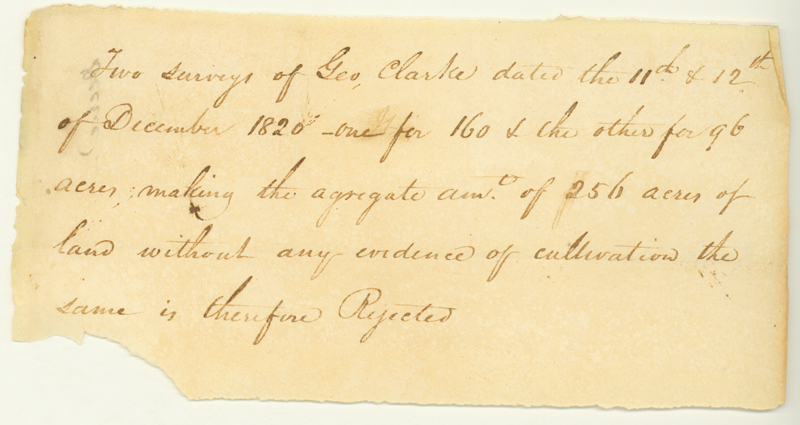 Two surveys of Geo, Clarke dated the 11th & 12th
of December 1820 - one for 160 & the other for 96
acres, making the agregate amt. of 256 acres of
land without any evidence of cultivation the
same is therefore Rejected